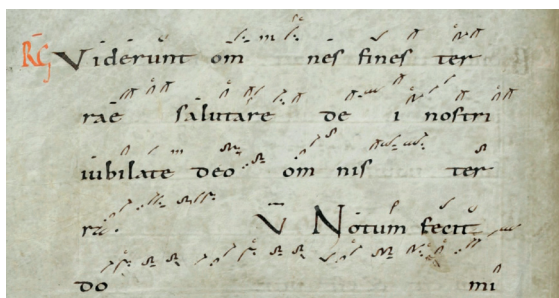 RG Viderunt om nes fines ter
rae salutare de i nostri
iubilate deo om nis ter
ra. V Notum fecit
do mi